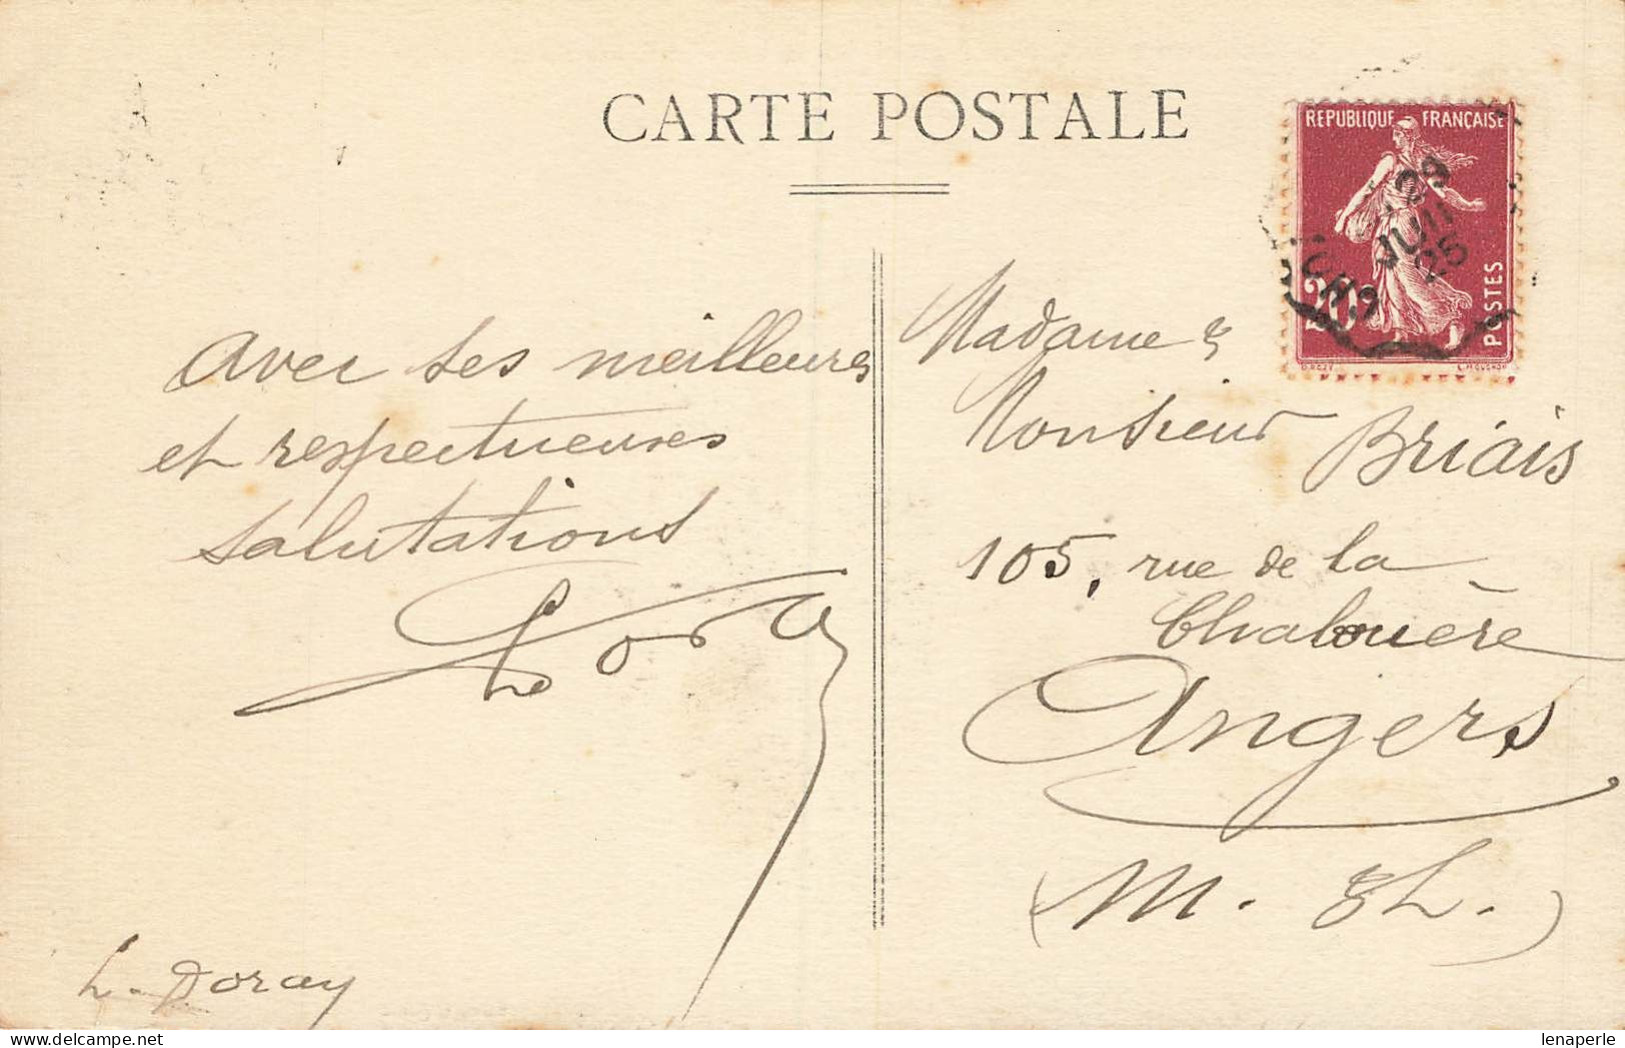 CARTE POSTALE
REPUBLIQUE FRANÇAISE
20
POSTES
29
JUIN
25
Avec ses meilleures
et respectueuses
salutations
L. Doray
Madame &
Monsieur Briais
105, rue de la
Chalouère
Angers
(M. & L.)
lenaperle